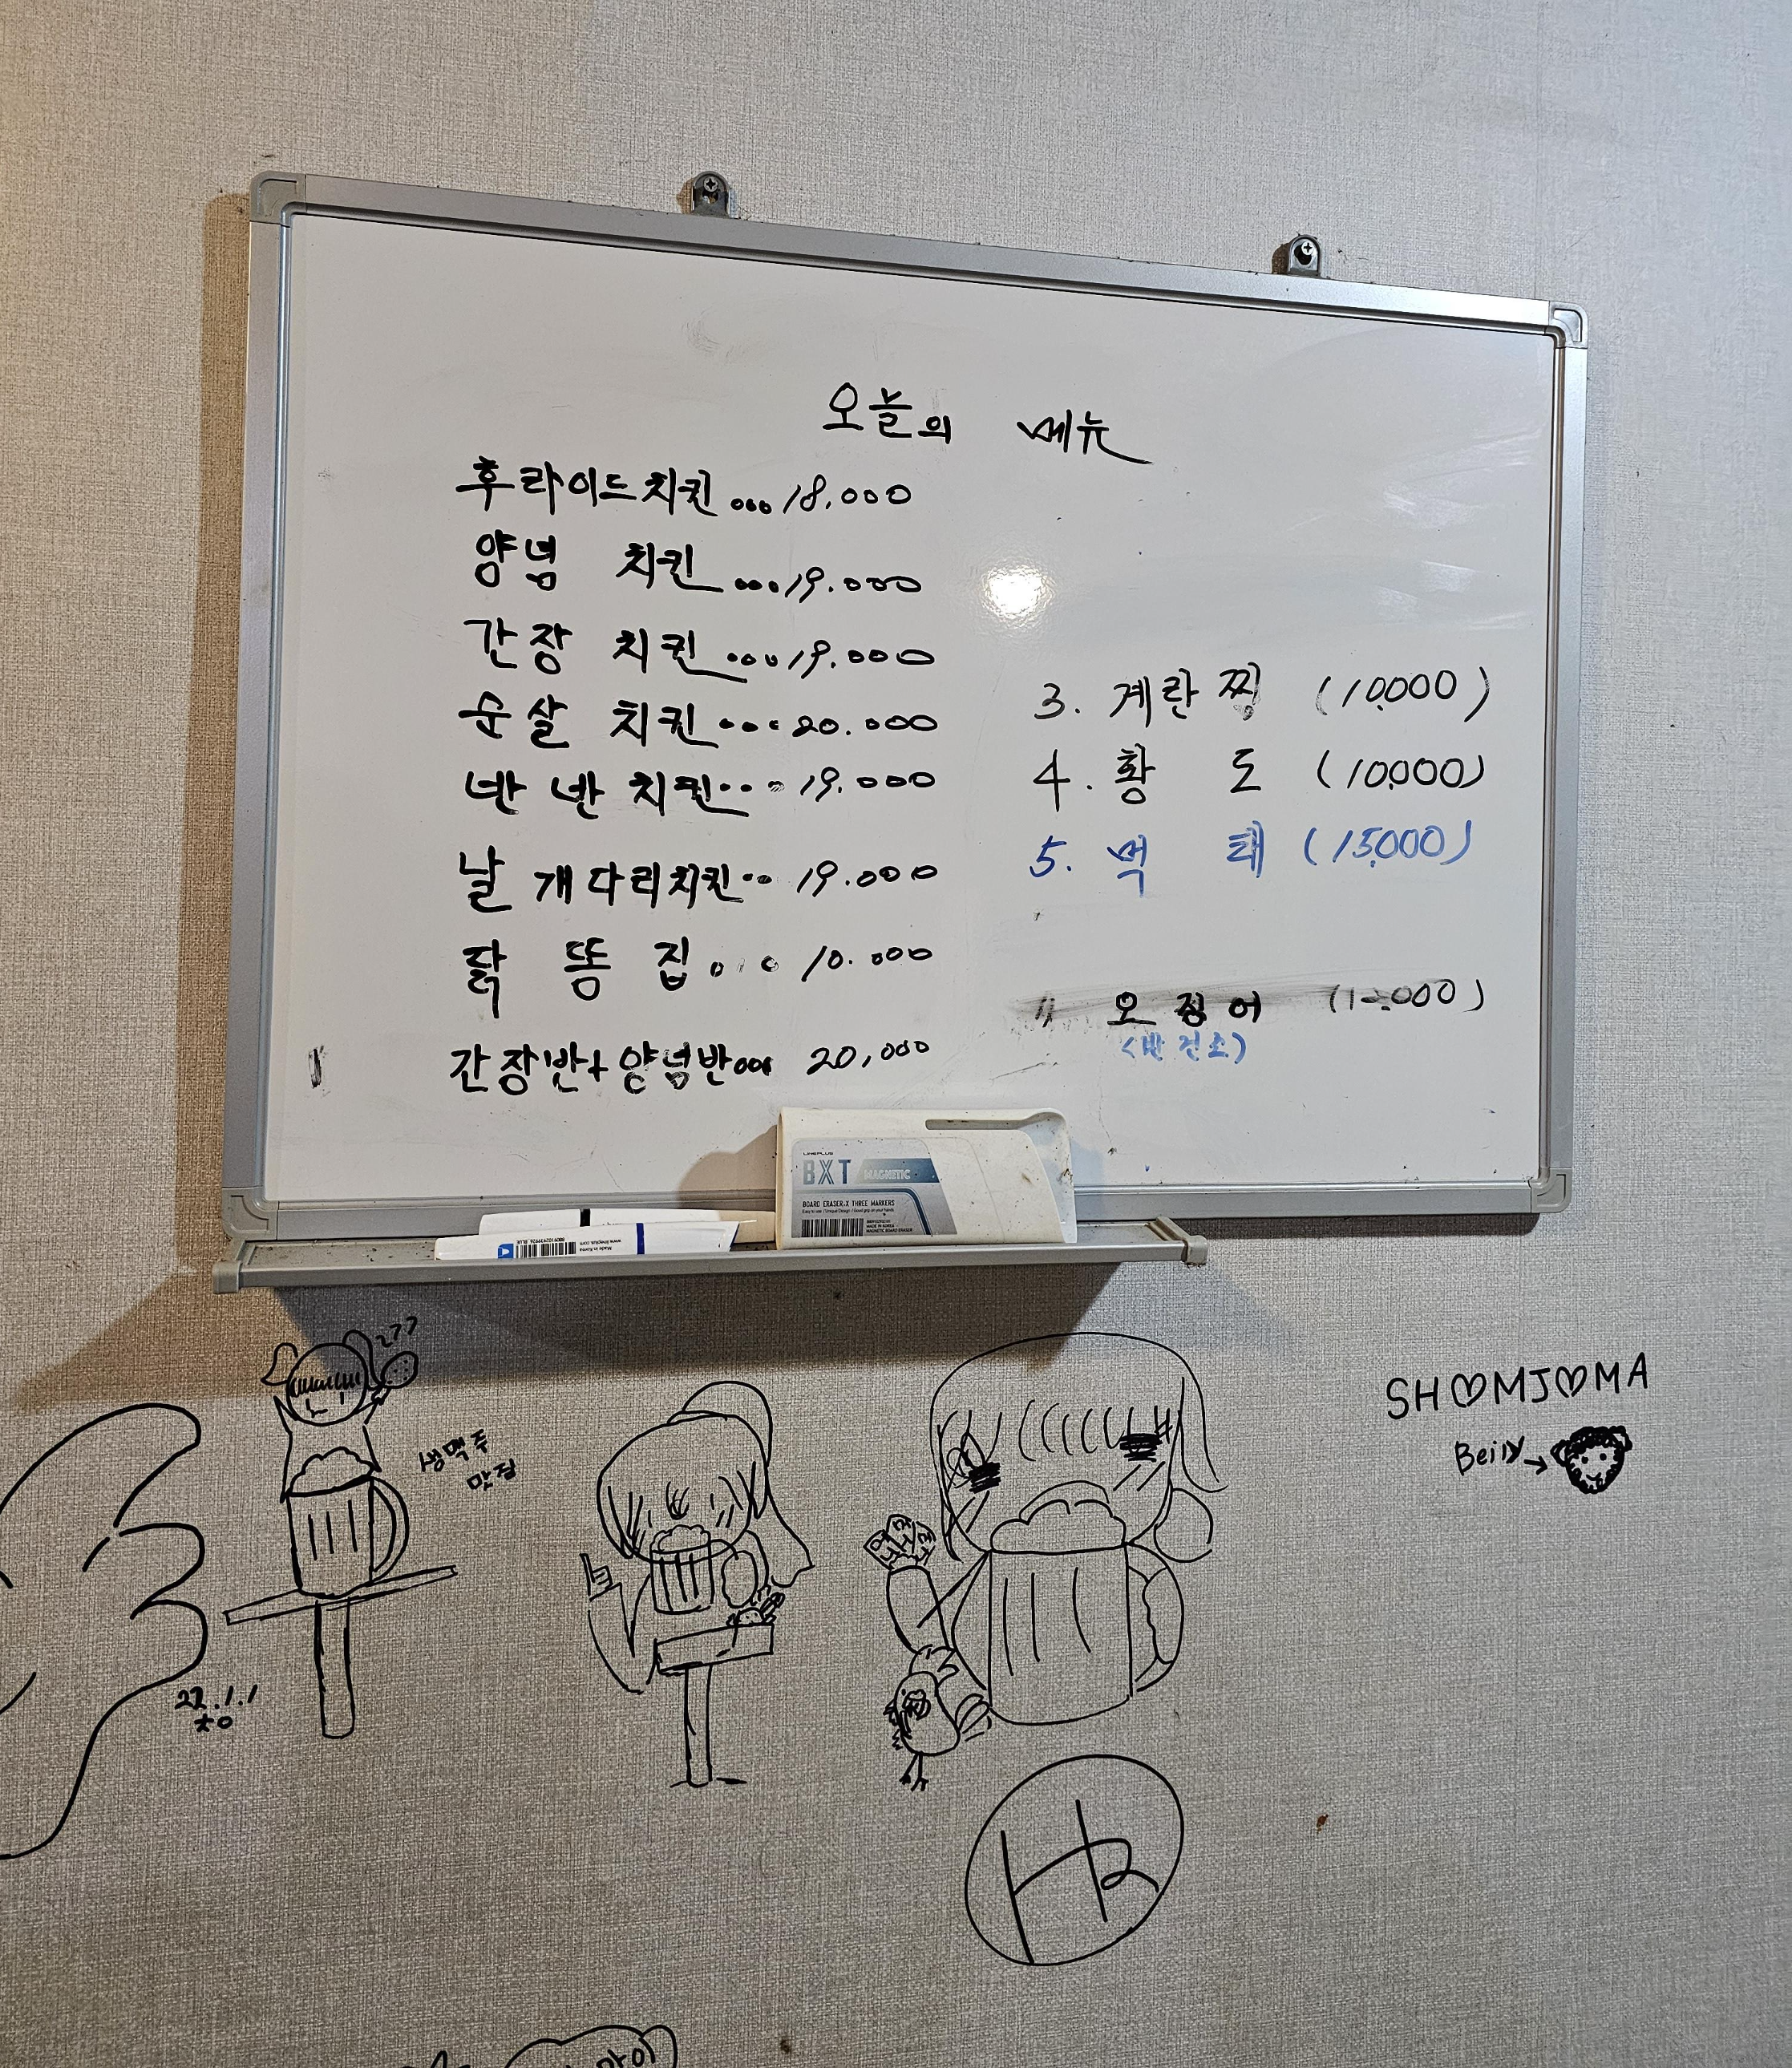 오늘의 메뉴
후라이드치킨...18,000
양념 치킨...19.000
간장 치킨...19.000
순살 치킨...20.000
반 반 치킨...19.000
날개다리치킨..19.000
닭 똥 집...10.000
간장반+양념반... 20,000
3. 계란찜 (10,000)
4. 황 도 (10,000)
5. 먹 태 (15,000)
오징어 (12,000)
<반건조>
LINEPLUS
BXT MAGNETIC
BOARD ERASER.X THREE MARKERS
Made in Korea
www.lineplus.com
생맥주
맛집
22.1.1
SH♡MJ♡MA
Beily→